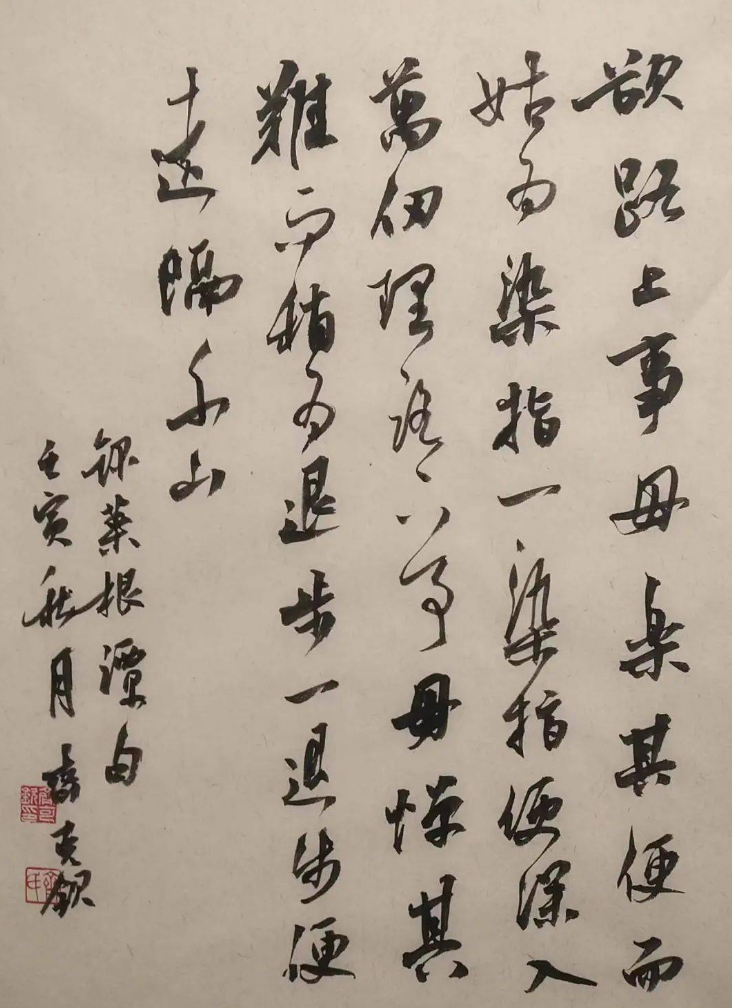 欲路上事毋樂其便而
姑为染指一染指便深入
萬仞理路上事毋憚其
難而稍为退步一退步便
遠隔千山
錄菜根潭句
壬寅秋月